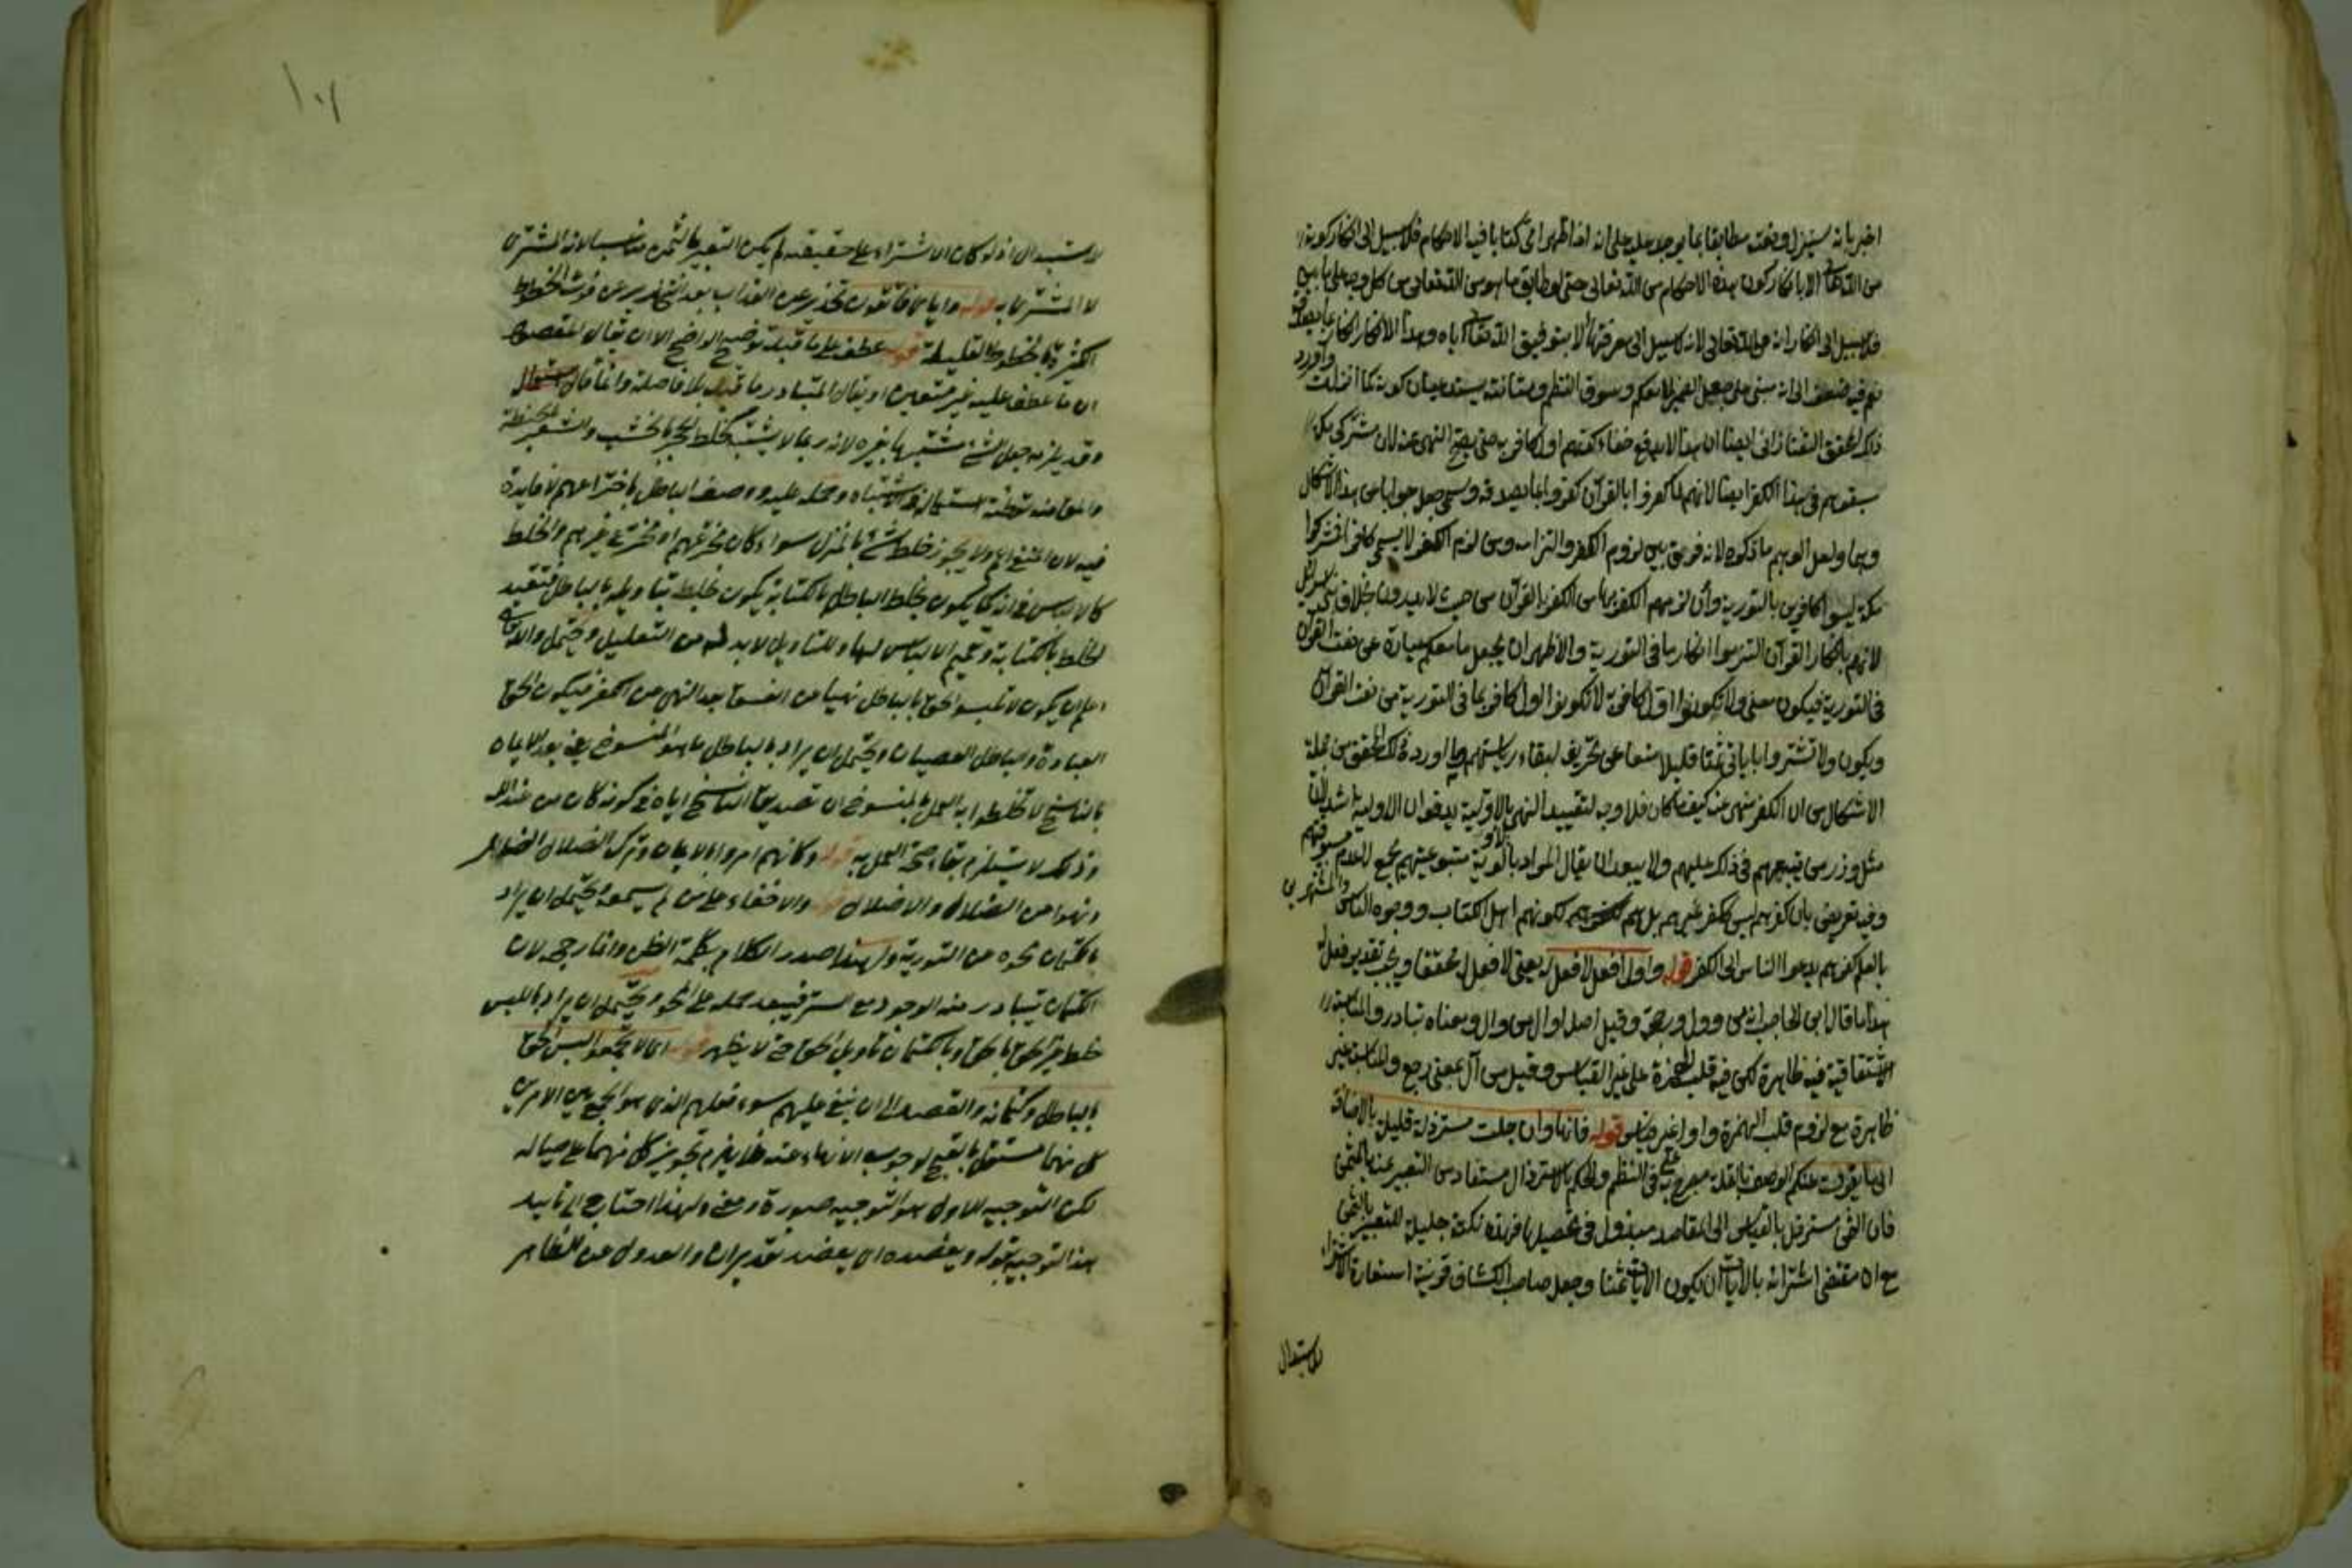 اخبر بانه سينزل ونعته مطابقا بما يوجد عليه على انه اذا ظهر اى كتابا فيه الاحكام فلا سبيل الى انكار كونه
من الله تعالى الا بانكار كون هذه الاحكام من الله تعالى حتى لو طابق ما هو من الله تعالى من كل وجه
فلا سبيل الى انكار انه من الله تعالى لانه لا سبيل الى معرفتها الا بتوفيق الله تعالى اياه وهذا الانكار انكار
ثم فيه ضعف الى انه مبنى على جعل الضمير لما معكم وسوق النظم ومتانته يستدعيان كونه لما انزلت
ذكر المحقق التفتازانى ايضا ان هذا لا يدفع خفاء كونهم اول كافر به حتى يصح النهى عنه لان مشركى مكة
سبقوهم فى هذا الكفر ايضا لانهم لما كفروا بالقرآن كفروا بما يصدقه وسمى جعل جوابا من هذا الاشكال
وهما ولعل الوهم ما ذكره لانه فرق بين لزوم الكفر والتزامه ومن لزم الكفر لا يسمى كافرا فمشركوا
مكة ليسوا كافرين بالتورية وان لزمهم الكفر بها من الكفر بالقرآن من حيث لا يدرون بخلاف بنى اسرائيل
لانهم بانكار القرآن التزموا انكار ما فى التورية والاظهر ان يجعل ما معكم عبارة عن نعت القرآن
فى التورية فيكون معنى ولا تكونوا اول كافر به لا تكونوا اول كافر بما فى التورية من نعت القرآن
ويكون ولا تشتروا باياتى ثمنا قليلا منعا عن تحريف لبقاء رياستهم وما اورده ذلك المحقق من جملة
الاشكال من ان الكفر منهى عنه كيف ما كان فلا وجه لتقييد النهى بالاولية يدفعه ان الاولية اشد لان
مثل وزر من يتبعهم فى ذلك عليهم ولا يبعد ان يقال المراد بالاولية متبوعيتهم
وفيه تعريض بان كفرهم ليس ككفر غيرهم بل هم لكونهم اهل الكتاب ووجوه الناس والمشهورين
بالعلم كفرهم يدعوا الناس الى الكفر قوله واول افعل لا فعل له يعنى لا فعل له محققا ويجب تقدير فعل له
هذا ما قال ابن الحاجب انه من وول ورجحه وقيل اصله اوال من وال ومعناه تبادر والمناسبة
الاشتقاقية فيه ظاهرة لكن فيه قلب الهمزة على غير القياس وقيل من آل بمعنى رجع والمناسبة غير
ظاهرة مع لزوم قلب الهمزة واوا غير قياس قوله فانها وان جلت مسترذلة قليلة بالاضافة
الى ما يفوت عنكم الوصف بالقلة مصرح به فى النظم والحكم بالاسترذال مستفاد من التعبير عنه بالثمن
فان الثمن مسترذل بالقياس الى المقاصد مبذول فى تحصيلها فهذه نكتة جليلة للتعبير بالثمن
مع ان مقتضى اشترائه بالآيات ان يكون الآيات ثمنا وجعل صاحب الكشاف قرينة استعارة الاشتراء
للاستبدال
١٠٦
للاستبدال اذ لو كان الاشتراء على حقيقته لم يكن التعبير بالثمن مناسبا لانه المشترى
لا المشترى به قوله واياى فاتقون تحذير عن العذاب بعد التحذير عن فوت الحظوظ
الكثيرة بالحظوظ القليلة قوله عطف على ما قبله توضيح الواضح الا ان يقال المقصود
ان ما عطف عليه غير متعين او يقال المتبادر ما قبله بلا فاصلة وانما قال
وقد يلزمه جعل الشئ مشتبها بغيره لانه ربما لا يشتبه كخلط الحجر بالخشب والشعير بالحنطة
والحق منه توطئة استعماله فى الاشتباه وحمله عليه ووصف الباطل باختراعهم لا فايدة
فيه لان الممتنع اولا يجوز خلط شئ بالمنزل سواء كان مخترعهم او مخترع غيرهم والخلط
كالالباس فى انه كما يكون بخلط الباطل بالكتابة يكون بخلط تباويله بالباطل فتقييد
الخلط بالكتابة وتعميم الالباس لها وللتاويل لا بد له من التعليل ويحتمل والله تعالى
اعلم ان يكون لا تلبسوا الحق بالباطل نهيا عن الفسق بعد النهى عن الكفر فيكون الحق
العبادة والباطل العصيان ويحتمل ان يراد بالباطل ما هو المنسوخ يعنى بعد الايمان
بالناسخ لا تخلطوا به العمل بالمنسوخ لان تصديق الناسخ اياه فى كونه كان من عند الله
وذلك لا يستلزم بقاء صحة العمل به قوله وكانهم امروا بالايمان وترك الضلال
ونهوا عن الضلال والاضلال قوله والاخفاء على من لم يسمعه ويحتمل ان يراد
بالكتمان محوه من التورية ولهذا صدر الكلام بكلمة الظن وانما رجحه لان
الكتمان يتبادر منه الوجود مع الستر فيبعد حمله على المحو ويحتمل ان يراد باللبس
خلط غير الحق بالحق وبالكتمان تاويل الحق حتى لا يظهر قوله اى لا تجمعوا لبس الحق
بالباطل وكتمانه والقصد الى ان ينعى عليهم سوء فعلهم الذى هو الجمع بين الامرين
كل منهما مستقل بالقبح لوجوب الانهاء عنه فلا يلزم تجويز كل منهما على حياله
لكن التوجيه الاول هو التوجيه صورة ومعنى ولهذا احتاج الى تاييد
هذا التوجيه بقوله ويعضده اى يعضد تقدير ان والعدول عن الظاهر